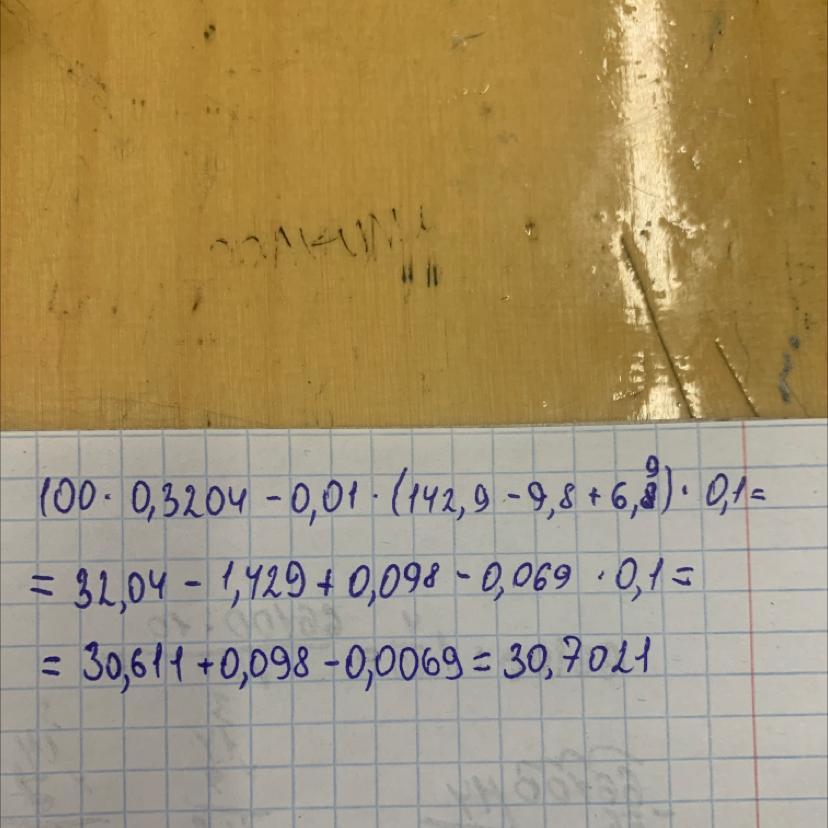 100 · 0,3204 - 0,01 · (142,9 - 9,8 + 6,9) · 0,1 =
= 32,04 - 1,429 + 0,098 - 0,069 · 0,1 =
= 30,611 + 0,098 - 0,0069 = 30,7021